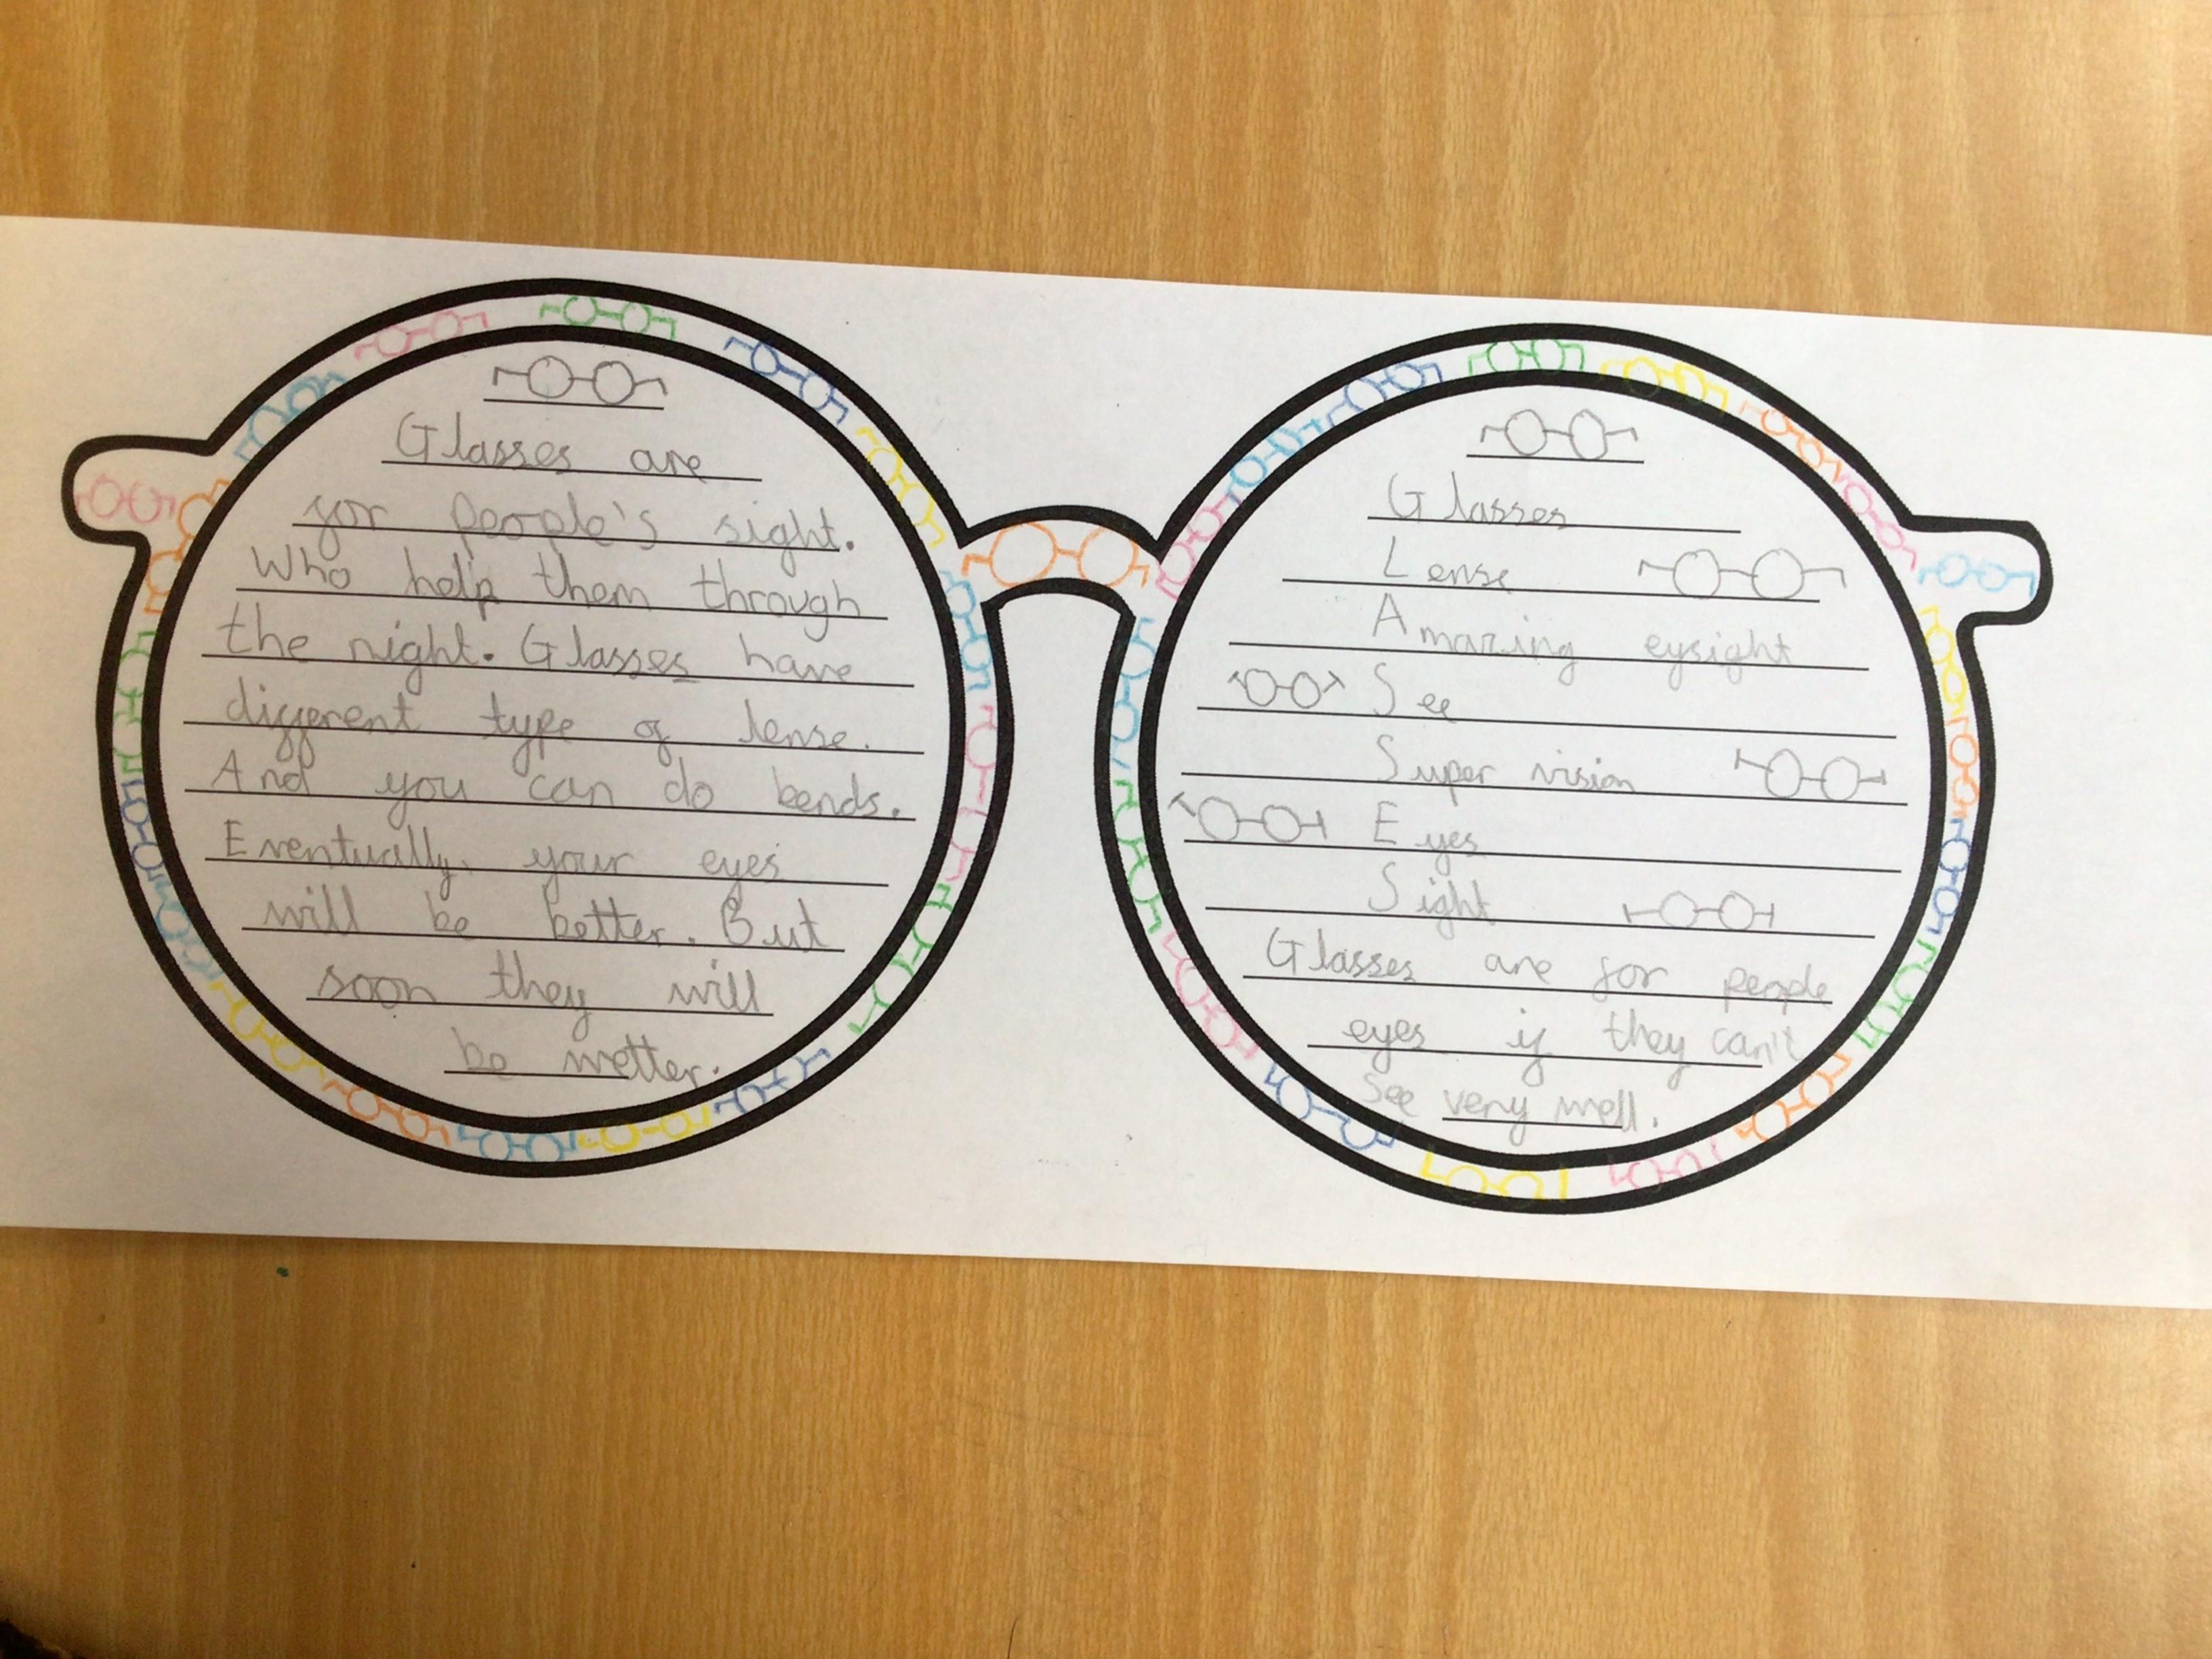 Glasses are
for people's sight.
Who help them through
the night. Glasses have
different type of lense.
And you can do bends.
Eventually, your eyes
will be better. But
soon they will
be wetter.
Glasses
Lense
Amazing eysight
See
Super vision
Eyes
Sight
Glasses are for people
eyes if they can't
see very well.